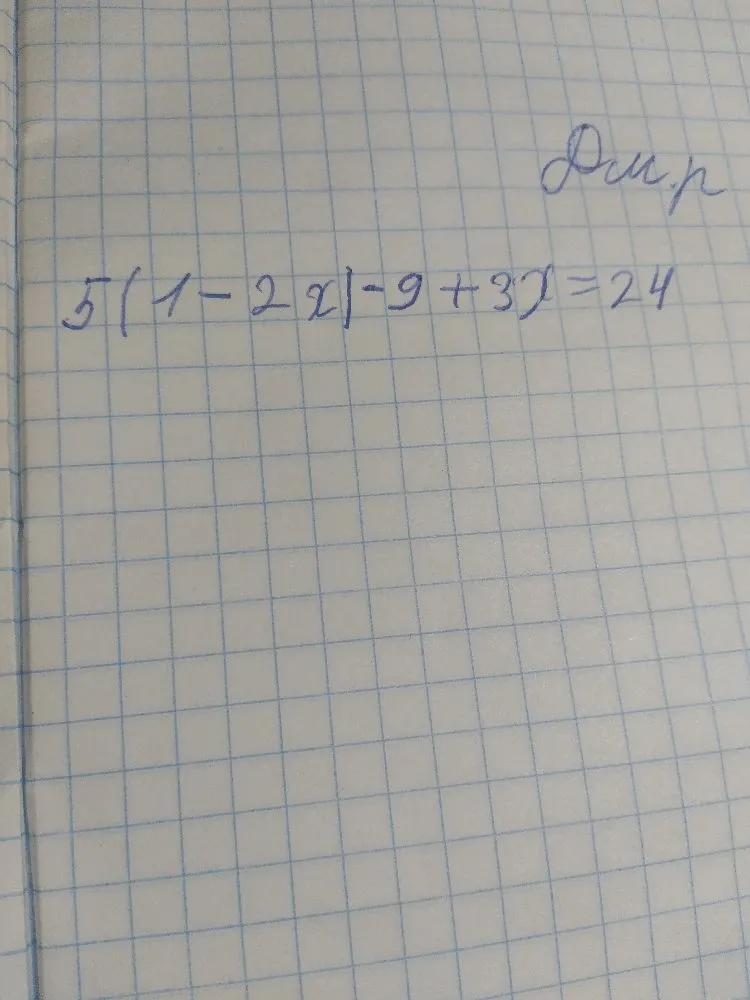 Дм.р
5(1-2x)-9+3x=24